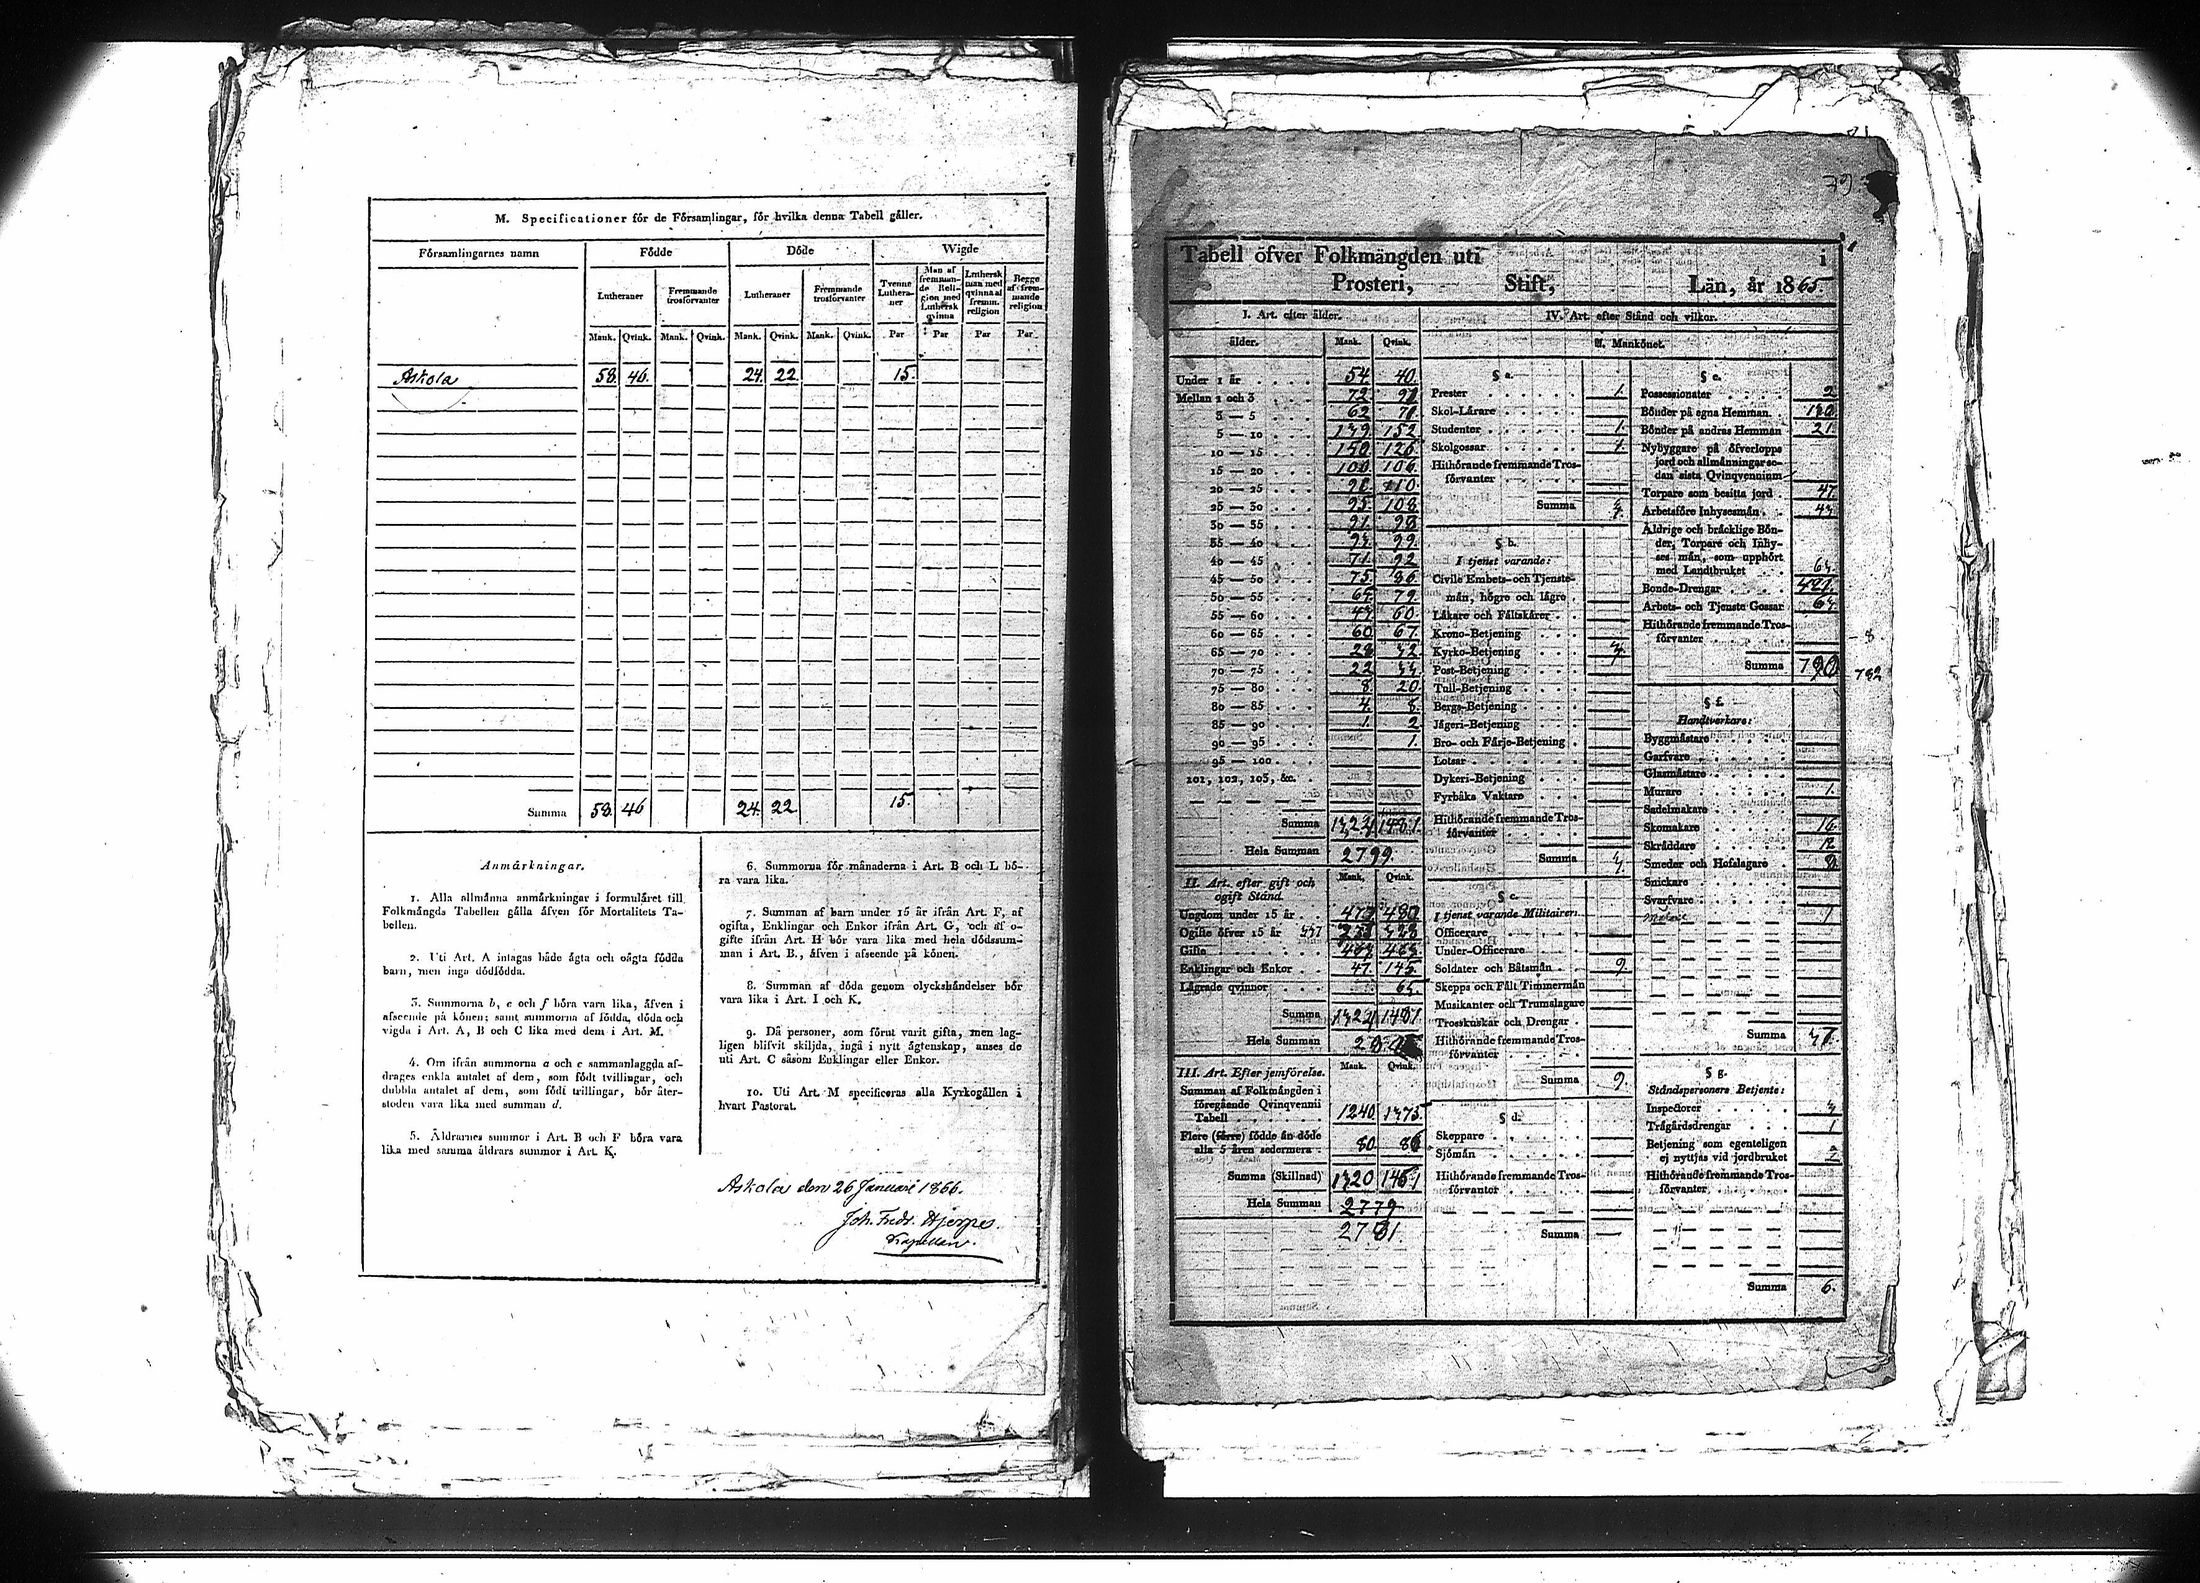 M. Specificationer för de Församlingar, för hvilka denna Tabell gäller.
Församlingarnes namn Födde Döde Wigde
Lutheraner Fremmande trosförvanter Lutheraner Fremmande trosförvanter Tvenne Lutheraner Man af fremmande Religion med Luthersk qvinna Luthersk man med qvinna af fremm. religion Begge af fremmande religion
Mank. Qvink. Mank. Qvink. Mank. Qvink. Mank. Qvink. Par Par Par Par
Askola 58. 46. 24. 22. 15.
Summa 58. 46 24. 22 15.
Anmärkningar.
1. Alla allmänna anmärkningar i formuläret till
Folkmängds Tabellen gälla äfven för Mortalitets Ta-
bellen.
2. Uti Art. A intagas både ägta och oägta födda
barn, men inga dödfödda.
3. Summorna b, c och f böra vara lika, äfven i
afseende på könen; samt summorna af födda, döda och
vigda i Art. A, B och C lika med dem i Art. M.
4. Om ifrån summorna a och c sammanlaggda af-
drages enkla antalet af dem, som födt tvillingar, och
dubbla antalet af dem, som födt trillingar, bör åter-
stoden vara lika med summan d.
5. Äldrarnes summor i Art. B och F böra vara
lika med samma äldrars summor i Art. K.
6. Summorna för månaderna i Art. B och L bö-
ra vara lika.
7. Summan af barn under 15 år ifrån Art. F, af
ogifta, Enklingar och Enkor ifrån Art. G, och af o-
gifte ifrån Art. H bör vara lika med hela dödssum-
man i Art. B., äfven i afseende på könen.
8. Summan af döda genom olyckshändelser bör
vara lika i Art. I och K.
9. Då personer, som förut varit gifta, men lag-
ligen blifvit skiljda, ingå i nytt ägtenskap, anses de
uti Art. C såsom Enklingar eller Enkor.
10. Uti Art. M specificeras alla Kyrkogällen i
hvart Pastorat.
Askola den 26 Januari 1866.
Joh. Fredr. Hjerpes.
Kapellan.
79
Tabell öfver Folkmängden uti i
Prosteri, Stift, Län, år 1865.
I. Art. efter ålder.
ålder. Mank. Qvink.
Under 1 år 54. 40.
Mellan 1 och 3 72.
3 — 5 62
5 — 10 139. 152.
10 — 15 150. 126.
15 — 20 106.
20 — 25 110.
25 — 30 95. 108.
30 — 35 91. 98
35 — 40 99.
40 — 45 71. 92
45 — 50 75. 86
50 — 55 79
55 — 60 60.
60 — 65 60 67.
65 — 70 28
70 — 75 22
75 — 80 8. 20.
80 — 85 4. 8.
85 — 90 1. 2
90 — 95 1.
95 — 100
101, 102, 103, &c.
Summa
Hela Summan 2799.
II. Art. efter gift och
ogift Stånd. Mank. Qvink.
Ungdom under 15 år
Ogifte öfver 15 år
Gifte
Enklingar och Enkor 47. 145.
Lägrade qvinnor 65.
Summa
Hela Summan
III. Art. Efter jemförelse. Mank. Qvink.
Summan af Folkmängden i
föregående Qvinqvennii
Tabell 1240 1375.
Flere (färre) födde än döde
alla 5 åren sedermera 80. 86
Summa (Skillnad) 1320 1461
Hela Summan 2779
2781.
IV. Art. efter Stånd och vilkor.
Mankönet.
§ a.
Prester 1.
Skol-Lärare
Studenter 1.
Skolgossar 1.
Hithörande fremmande Tros-
förvanter
Summa 3.
§ b.
I tjenst varande:
Civile Embets- och Tjenste-
män, högre och lägre
Läkare och Fältskärer
Krono-Betjening
Kyrko-Betjening 3.
Post-Betjening
Tull-Betjening
Bergs-Betjening
Jägeri-Betjening
Bro- och Färje-Betjening
Lotsar
Dykeri-Betjening
Fyrbåks Vaktare
Hithörande fremmande Tros-
förvanter
Summa 3.
§ c.
I tjenst varande Militairer:
Officerare
Under-Officerare
Soldater och Båtsmän 9.
Skepps och Fält Timmermän
Musikanter och Trumslagare
Trosskuskar och Drengar
Hithörande fremmande Tros-
förvanter
Summa 9.
§ d.
Skeppare
Sjömän
Hithörande fremmande Tros-
förvanter
Summa
§ e.
Possessionater 2
Bönder på egna Hemman
Bönder på andras Hemman 21.
Nybyggare på öfverlopps
jord och allmänningar se-
dan sista Qvinqvennium
Torpare som besitta jord 47.
Arbetsföre Inhysesmän
Åldrige och bräcklige Bön-
der, Torpare och Inhy-
ses män, som upphört
med Landtbruket
Bonde-Drengar
Arbets- och Tjenste Gossar
Hithörande fremmande Tros-
förvanter
- 8
Summa 790 782
§ f.
Handtverkare:
Byggmästare
Garfvare
Glasmästare
Murare 1.
Sadelmakare
Skomakare 16.
Skräddare 12
Smeder och Hofslagare 8.
Snickare
Svarfvare
Målare 1
Summa
§ g.
Ståndspersoners Betjente:
Inspectorer 3
Trägårdsdrengar 1
Betjening som egenteligen
ej nyttjas vid jordbruket 2
Hithörande fremmande Tros-
förvanter
Summa 6.